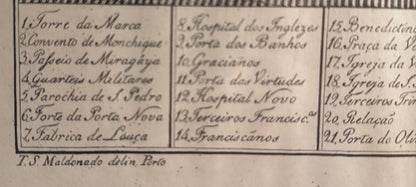 1, Torre da Marca
2, Convento de Monchique
3, Passeio de Miragaya
4, Quarteis Militares
5, Parochia de S. Pedro
6, Forte da Porta Nova
7, Fabrica de Louça
8, Hospital dos Inglezes
9, Porta dos Banhos
10, Gracianos
11, Porta das Virtudes
12, Hospital Novo
13, Terceiros Francisc.ᵒˢ
14, Franciscanos
15, Benedictin
16, Praça da V
17, Igreja da V
18, Igreja de S.
19, Terceiros Trin
20, Relação
21, Porta do Oli
T. S. Maldonado delin. Porto